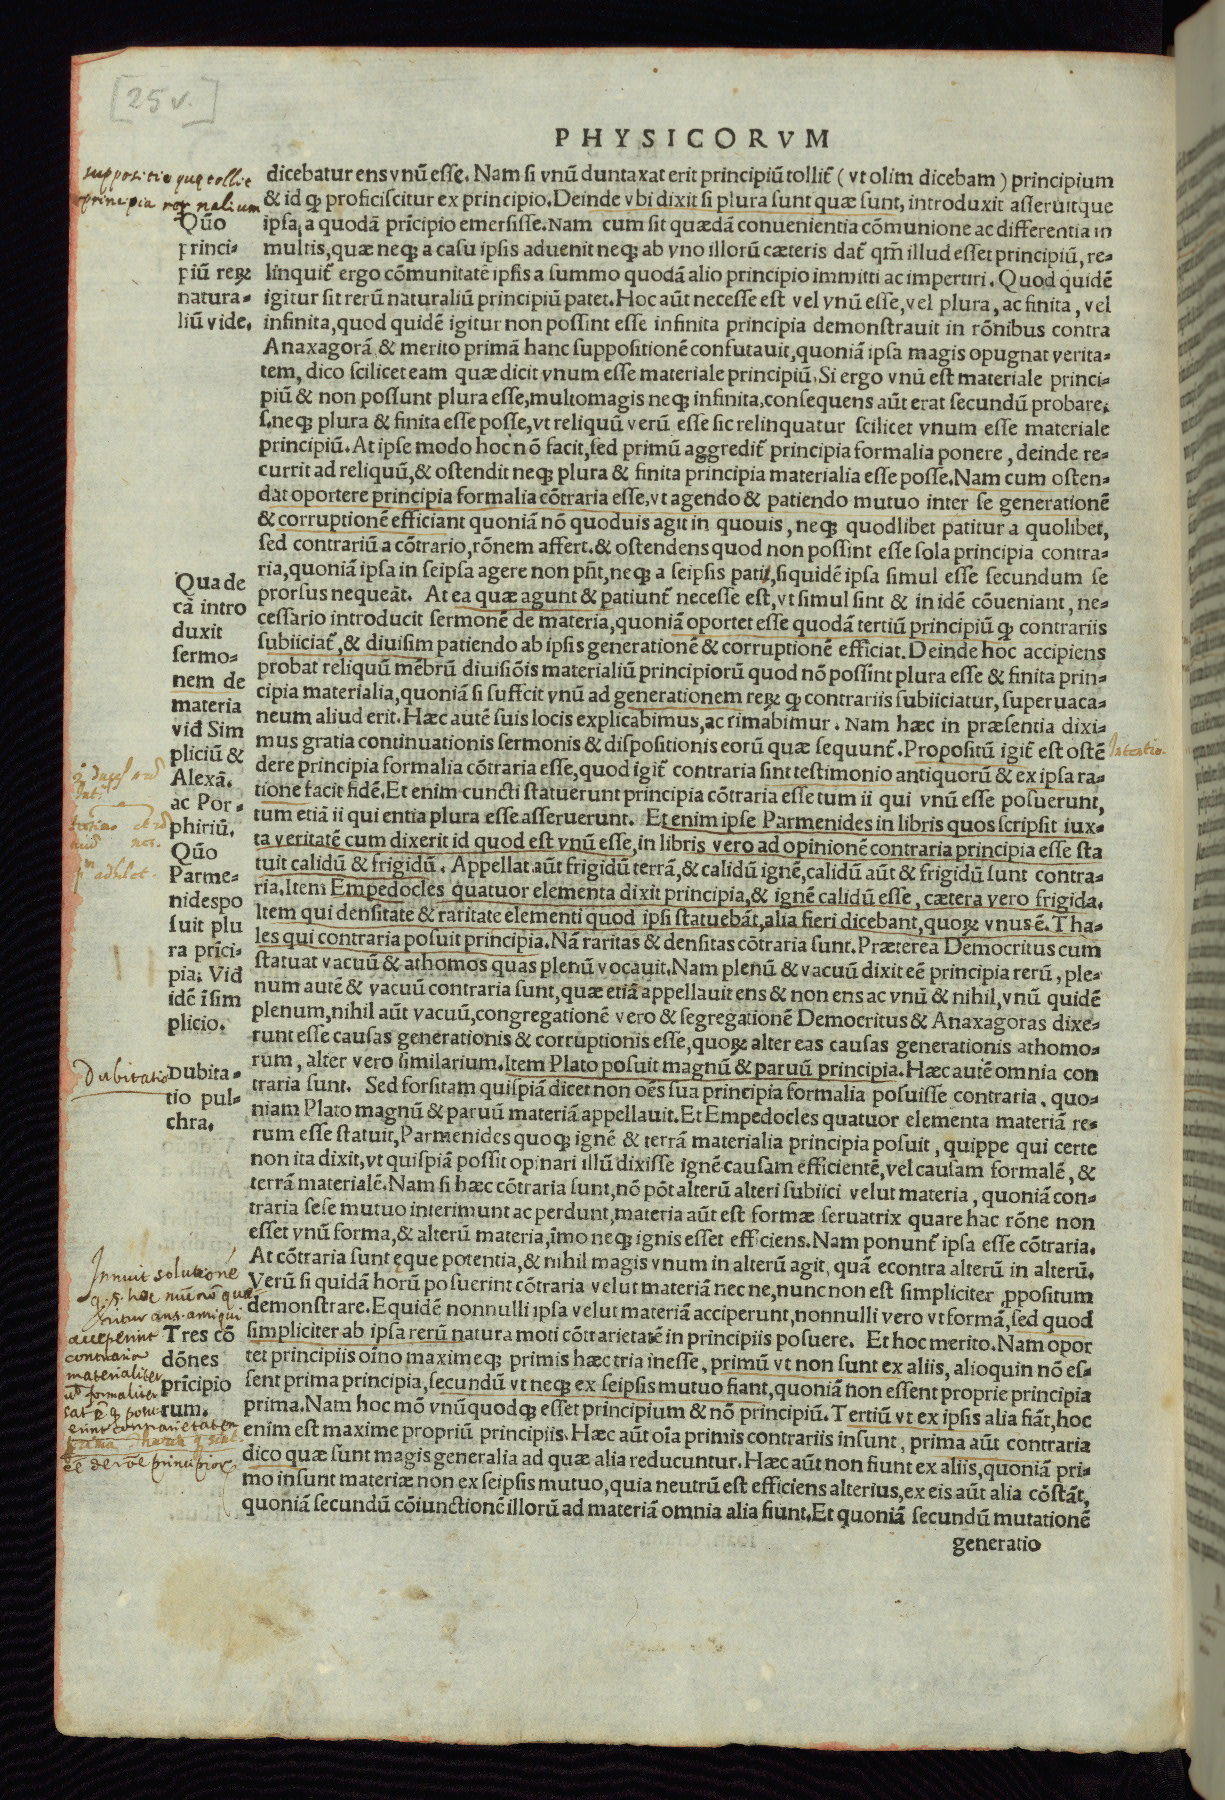 [25 v.]
PHYSICORVM
suppositio quę tollit
principia rerum naliũm
Qũo
princi-
piũ reꝝ
natura-
liũ vide.
dicebatur ens vnũ esse. Nam si vnũ duntaxat erit principiũ tollit᷑ (vt olim dicebam) principium
& id qđ proficiscitur ex principio. Deinde vbi dixit si plura sunt quæ sunt, introduxit asseruitque
ipsa, a quodã prĩcipio emersisse. Nam cum sit quædã conuenientia cõmunione ac differentia in
multis, quæ neqꝫ a casu ipsis aduenit neqꝫ ab vno illorũ cæteris dat᷑ qm̃ illud esset principiũ, re-
linquit᷑ ergo cõmunitatẽ ipsis a summo quodã alio principio immitti ac impertiri. Quod quidẽ
igitur sit rerũ naturaliũ principiũ patet. Hoc aũt necesse est vel vnũ esse, vel plura, ac finita, vel
infinita, quod quidẽ igitur non possint esse infinita principia demonstrauit in rõnibus contra
Anaxagorã & merito primã hanc suppositionẽ confutauit, quoniã ipsa magis opugnat verita-
tem, dico scilicet eam quæ dicit vnum esse materiale principiũ. Si ergo vnũ est materiale princi-
piũ & non possunt plura esse, multomagis neqꝫ infinita. consequens aũt erat secundũ probare,
s. neqꝫ plura & finita esse posse, vt reliquũ verũ esse sic relinquatur scilicet vnum esse materiale
principiũ. At ipse modo hoc nõ facit, sed primũ aggredit᷑ principia formalia ponere, deinde re-
currit ad reliquũ, & ostendit neqꝫ plura & finita principia materialia esse posse. Nam cum osten-
dat oportere principia formalia cõtraria esse, vt agendo & patiendo mutuo inter se generationẽ
& corruptionẽ efficiant quoniã nõ quoduis agit in quouis, neqꝫ quodlibet patitur a quolibet,
sed contrariũ a cõtrario, rõnem affert. & ostendens quod non possint esse sola principia contra-
ria, quoniã ipsa in seipsa agere non pñt, neqꝫ a seipsis pati, siquidẽ ipsa simul esse secundum se
prorsus nequeãt. At ea quæ agunt & patiunt᷑ necesse est, vt simul sint & in idẽ cõueniant, ne-
cessario introducit sermonẽ de materia, quoniã oportet esse quodã tertiũ principiũ qđ contrariis
subiiciat᷑, & diuisim patiendo ab ipsis generationẽ & corruptionẽ efficiat. Deinde hoc accipiens
probat reliquũ mẽbrũ diuisiõis materialiũ principiorũ quod nõ possint plura esse & finita prin-
cipia materialia, quoniã si suffcit vnũ ad generationem reꝝ qđ contrariis subiiciatur, superuaca-
neum aliud erit. Hæc autẽ suis locis explicabimus, ac rimabimur. Nam hæc in præsentia dixi-
mus gratia continuationis sermonis & dispositionis eorũ quæ sequunt᷑. Propositũ igit᷑ est ostẽ
dere principia formalia cõtraria esse, quod igit᷑ contraria sint testimonio antiquorũ & ex ipsa ra-
tione facit fidẽ. Et enim cuncti statuerunt principia cõtraria esse tum ii qui vnũ esse posuerunt,
tum etiã ii qui entia plura esse asseruerunt. Et enim ipse Parmenides in libris quos scripsit iux-
ta veritatẽ cum dixerit id quod est vnũ esse, in libris vero ad opinionẽ contraria principia esse sta
tuit calidũ & frigidũ. Appellat aũt frigidũ terrã, & calidũ ignẽ, calidũ aũt & frigidũ sunt contra-
ria. Item Empedocles quatuor elementa dixit principia, & ignẽ calidũ esse, cætera vero frigida.
Item qui densitate & raritate elementi quod ipsi statuebãt, alia fieri dicebant, quoꝝ vnus ẽ. Tha-
les qui contraria posuit principia. Nã raritas & densitas cõtraria sunt. Præterea Democritus cum
statuat vacuũ & athomos quas plenũ vocauit. Nam plenũ & vacuũ dixit eẽ principia rerũ, ple-
num autẽ & vacuũ contraria sunt, quæ etiã appellauit ens & non ens ac vnũ & nihil, vnũ quidẽ
plenum, nihil aũt vacuũ, congregationẽ vero & segregationẽ Democritus & Anaxagoras dixe-
runt esse causas generationis & corruptionis esse, quoꝝ alter eas causas generationis athomo-
rum, alter vero similarium. Item Plato posuit magnũ & paruũ principia. Hæc autẽ omnia con
traria sunt. Sed forsitam quispiã dicet non oẽs sua principia formalia posuisse contraria, quo-
niam Plato magnũ & paruũ materiã appellauit. Et Empedocles quatuor elementa materiã re-
rum esse statuit, Parmenides quoqꝫ ignẽ & terrã materialia principia posuit, quippe qui certe
non ita dixit, vt quispiã possit opinari illũ dixisse ignẽ causam efficientẽ, vel causam formalẽ, &
terrã materialẽ. Nam si hæc cõtraria sunt, nõ põt alterũ alteri subiici velut materia, quoniã con-
traria sese mutuo interimunt ac perdunt, materia aũt est formæ seruatrix quare hac rõne non
esset vnũ forma, & alterũ materia, ĩmo neqꝫ ignis esset efficiens. Nam ponunt᷑ ipsa esse cõtraria.
At cõtraria sunt ęque potentia, & nihil magis vnum in alterũ agit, quã econtra alterũ in alterũ.
Verũ si quidã horũ posuerint cõtraria velut materiã nec ne, nunc non est simpliciter ꝓpositum
demonstrare. Equidẽ nonnulli ipsa velut materiã acciperunt, nonnulli vero vt formã, sed quod
simpliciter ab ipsa rerũ natura moti cõtrarietatẽ in principiis posuere. Et hoc merito. Nam opor
tet principiis oĩno maximeqꝫ primis hæc tria inesse, primũ vt non sunt ex aliis, alioquin nõ es-
sent prima principia, secundũ vt neqꝫ ex seipsis mutuo fiant, quoniã non essent proprie principia
prima. Nam hoc mõ vnũquodqꝫ esset principium & nõ principiũ. Tertiũ vt ex ipsis alia fiãt, hoc
enim est maxime propriũ principiis. Hæc aũt oĩa primis contrariis insunt, prima aũt contraria
dico quæ sunt magis generalia ad quæ alia reducuntur. Hæc aũt non fiunt ex aliis, quoniã pri-
mo insunt materiæ non ex seipsis mutuo, quia neutrũ est efficiens alterius, ex eis aũt alia cõstãt,
quoniã secundũ cõiunctionẽ illorũ ad materiã omnia alia fiunt. Et quoniã secundũ mutationẽ
generatio
Qua de
cã intro
duxit
sermo-
nem de
materia
viđ Sim
pliciũ &
Alexã.
ac Por-
phiriũ.
Qũo
Parme-
nides po
suit plu
ra prĩci-
pia. Viđ
idẽ ĩ sim
plicio.
Intentio.
Dubitatio
Dubita-
tio pul-
chra.
Innuit solutionẽ
ans. amiqui
acceperint
contraria
materialiter
formaliter
contrarietatem
principior
Tres cõ
dõnes
prĩcipio
rum.